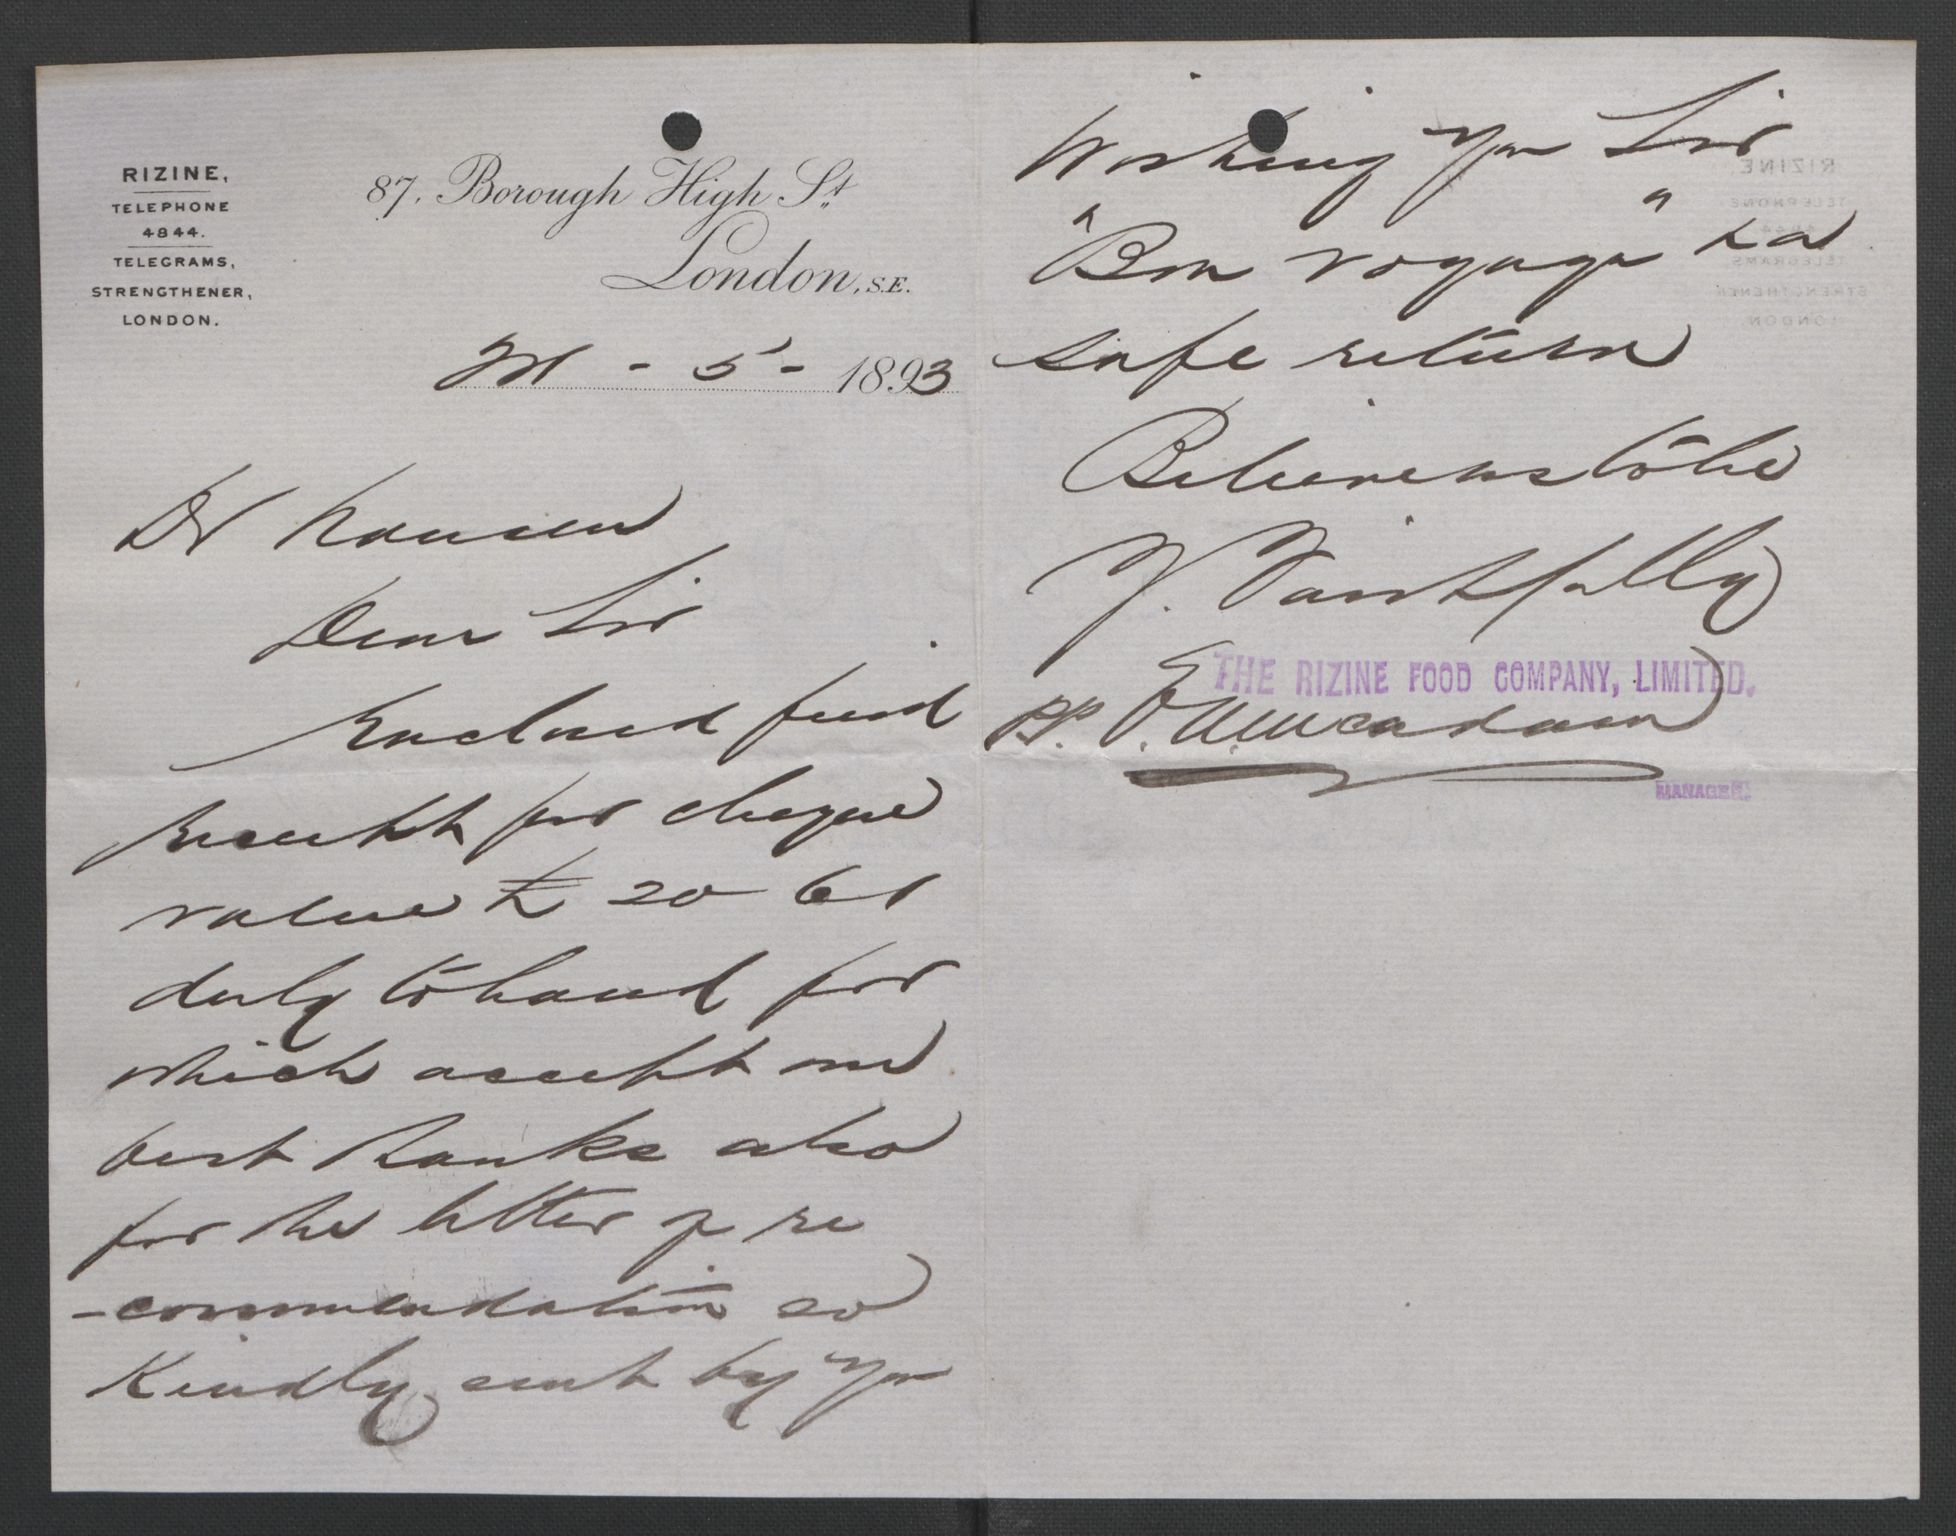 RIZINE,
TELEPHONE
4844.
TELEGRAMS,
STRENGTHENER,
LONDON.
87, Borough High St.
London, S.E.
M - 5 - 1893
Dr Nansen
Dear Sir
Enclosed find
receipt for cheque
value £ 20
duly to hand for
which accept our
best thanks also
for the letter of re
-commendation so
kindly sent by you
Wishing you Sir
"Bon voyage" & a
safe return
Believe us to be
Y. Faithfully
THE RIZINE FOOD COMPANY, LIMITED.
pp.
MANAGER.